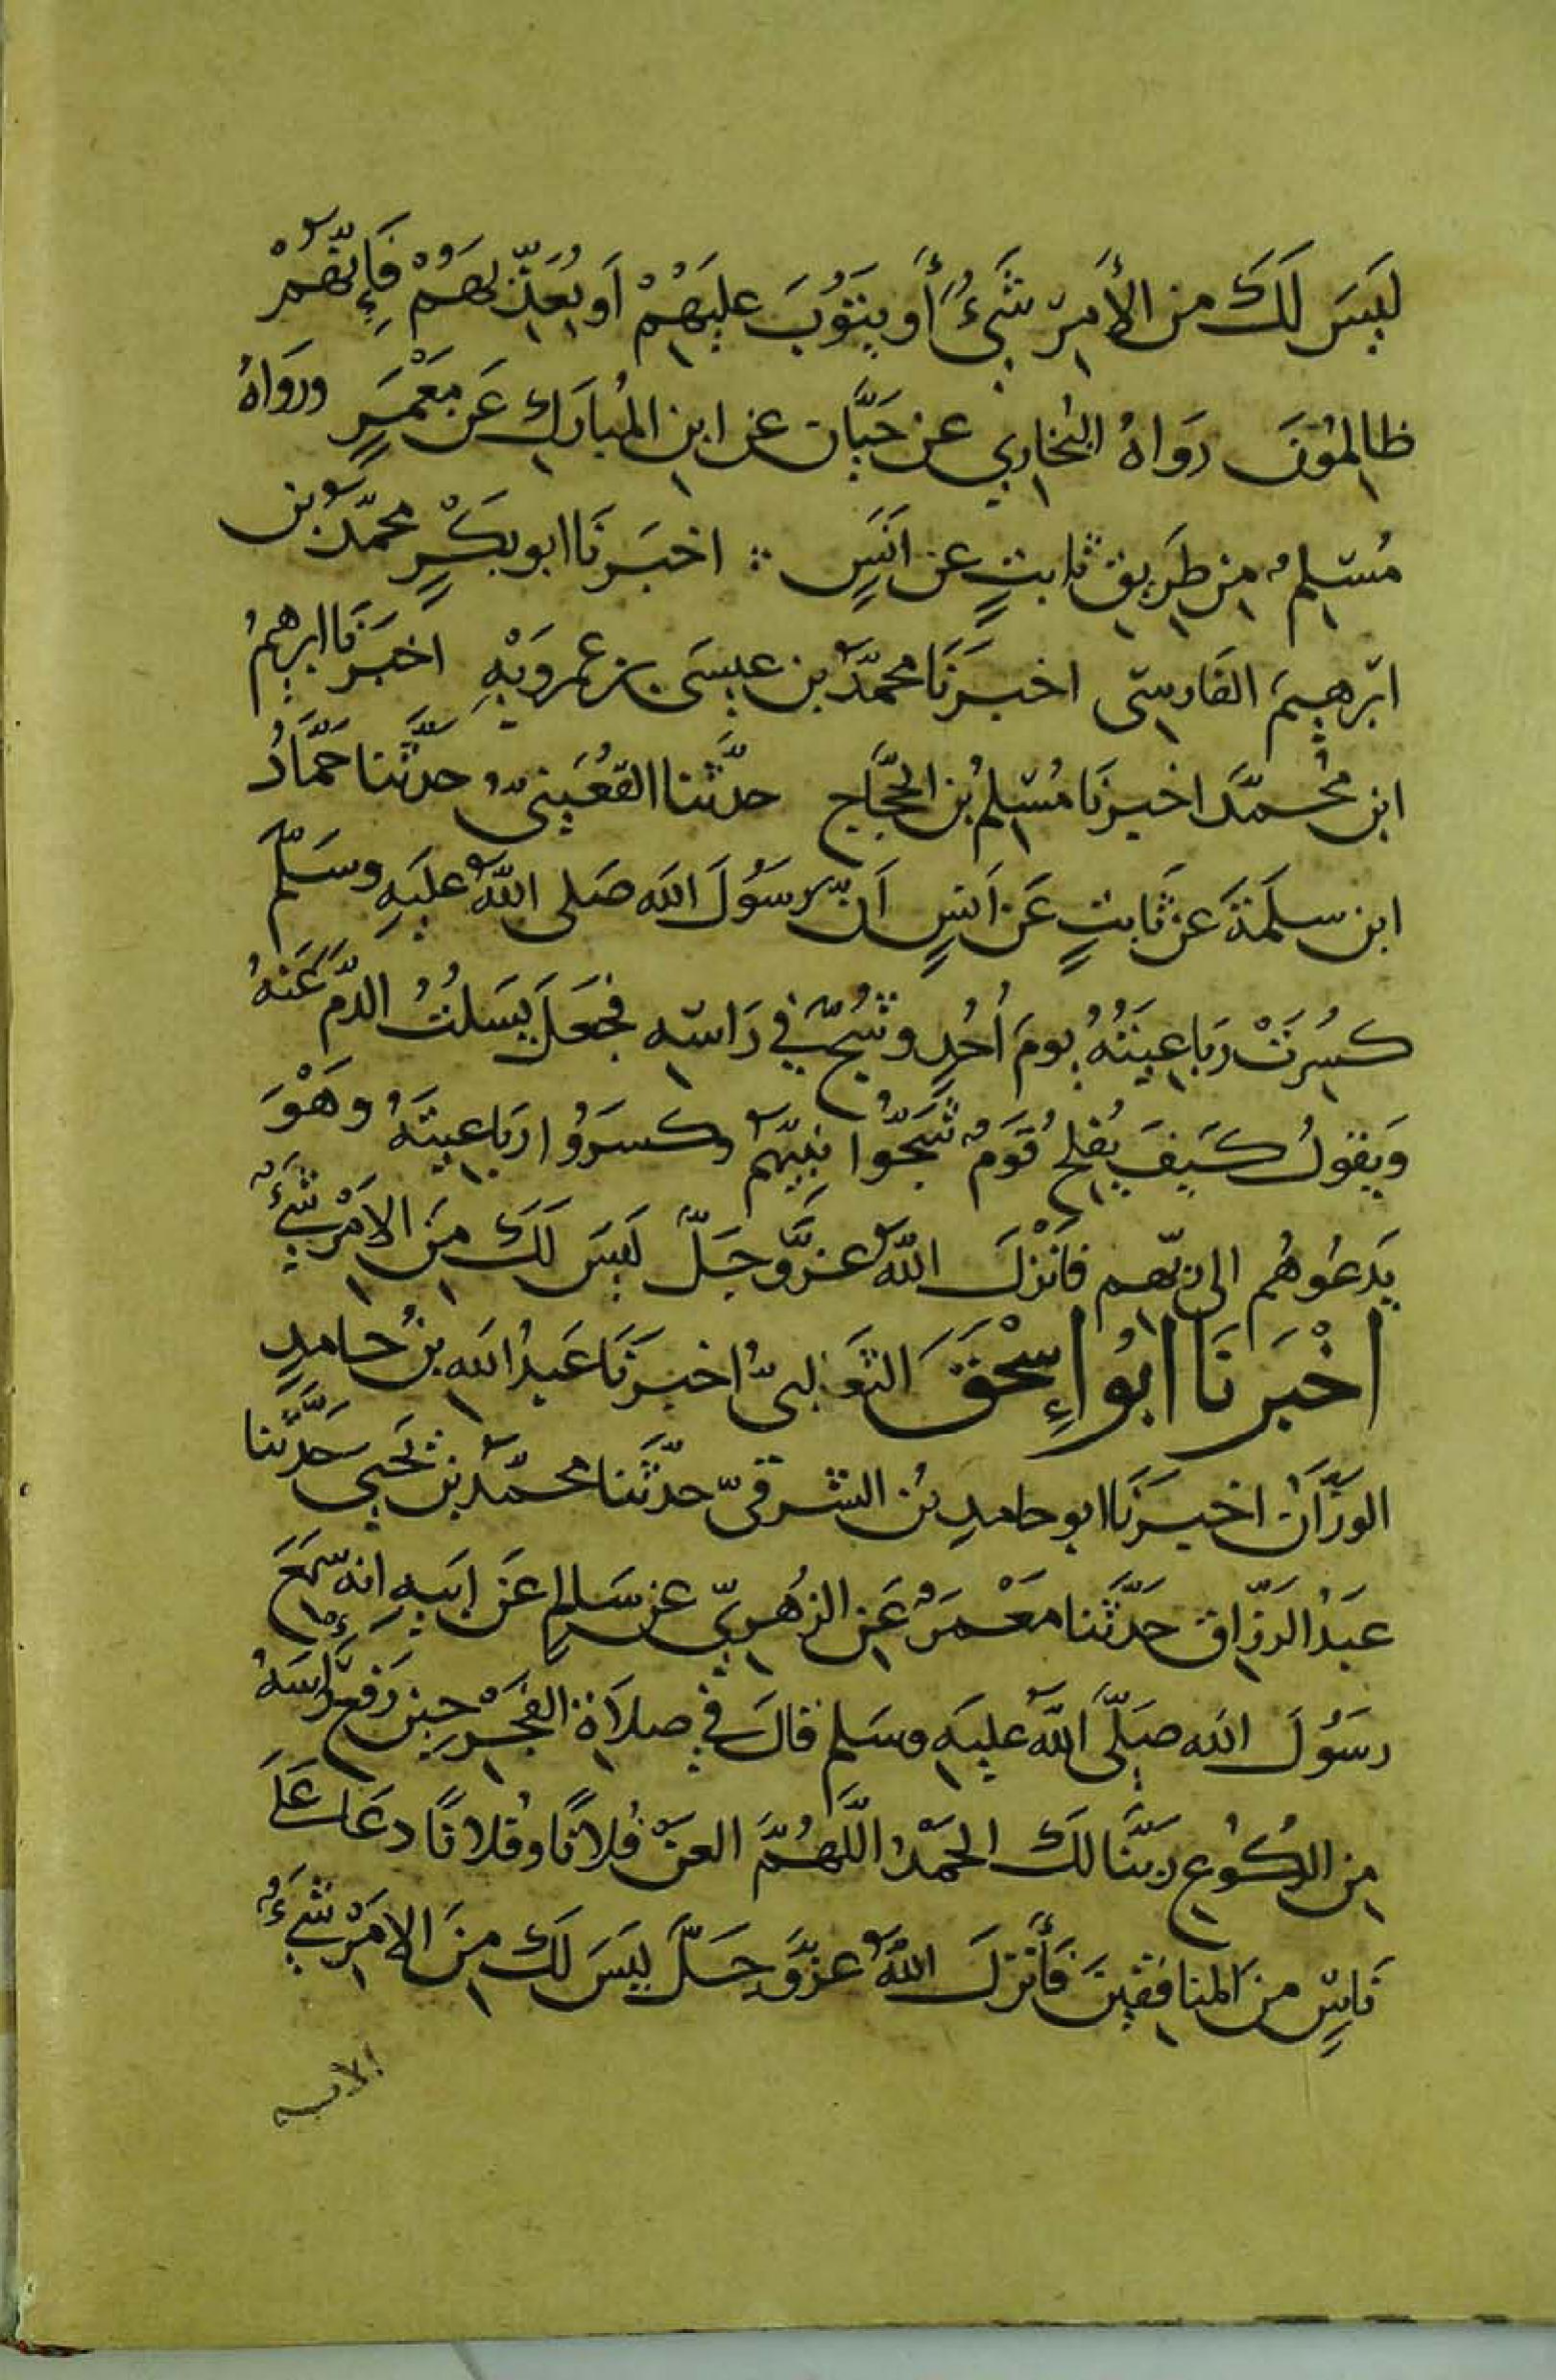 لَيسَ لَكَ من الأمرِ شَيءٌ أَو يَتوُبَ عليهِمْ اَو يُعَذِّبهُمْ فَإِنَّهُمْ
ظالمِوُنَ رَوَاهُ البُخاريِ عن حَبَّان عن ابنِ المُبارَكِ عَن مَعْمَرٍ ورَوَاهُ
مُسلمٌ مِن طَريقِ ثابتٍ عن اَنَسٍ ؞ اخبَرنَا ابو بَكْرٍ محمَّدُ بن
ابرهيمَ الفَارسِي اخبَرنَا محمَّدُ بن عيسَى بن عمروَيْهِ اخبَرنَا ابرهيمُ
ابن مُحمَّدَ اخبرنَا مُسلِمُ بنُ الحجَّاجِ حدَّثنا القعُنَبيُّ حدثَّنا حمَّادُ
ابن سلَمَةَ عن ثَابتٍ عَن اَنسٍ اَنَّ رسَوُلَ الله صَلى اللهُ عليَهِ وسَلّم
كسُرِتَْ رَباعِيَتُهُ يومَ اُحُدٍ وشُجَّ في رَاسِهِ فجعَلَ يَسَلُتُ الدَّم عَنهُ
وَيقوُلُ كَيفَ يُفلِحُ قَومٌ شَجّوُا نبَيّهمُ وكسَروُا رَباعِيتَهُ وهْوَ
يَدعُوهُم الى ربّهم فاَنْزلَ اللهُ عزَّوَجَلَّ لَيسَ لَكَ مِنَ الامْرِ شَيءٌ
اخْبَرنَا ابُو اءِسْحقَ الثعَلبىُّ اخبَرنَا عَبدُ الله بنُ حامدٍ
الوزَّانُ اخبَرنَا ابو حامدِ بنُ الشرقىّ حدَّثَنا محمّدُ بنُ يَحيى حَدثَّنا
عَبدُ الرزَّاق حَدثَّنا مَعْمَرٌ عَنِ الزهُريّ عن سَالمِ عَن ابَيهِ انه سَمعَ
رسَوُلَ الله صَلّى اللهُ عليَهِ وسَلم قالَ في صلاَة الفجَرْ حِينَ رَفعَ رَاسَهُ
مِن الركُوُعِ ربَّنَا لكَ الحَمْدُ اللَّهُمَّ العَنْ فُلانًا وفُلانًا دعَا عَلَى
نَاسٍ منَ المنافقِينَ فَأَنزلَ اللهُ عزَّوَجَلَّ لَيسَ لَكَ مِنَ الامَرْ شَيءٌ
الايه